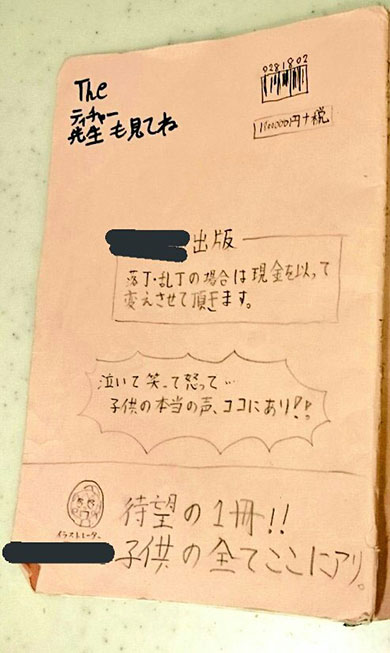 The
ティーチャー
先生も見てね
0281802
円+税
出版
落丁・乱丁の場合は現金を以って
変えさせて頂きます。
泣いて笑って怒って…
子供の本当の声、ココにあり!!
待望の1冊!!
イラストレーター
子供の全てここにアリ。